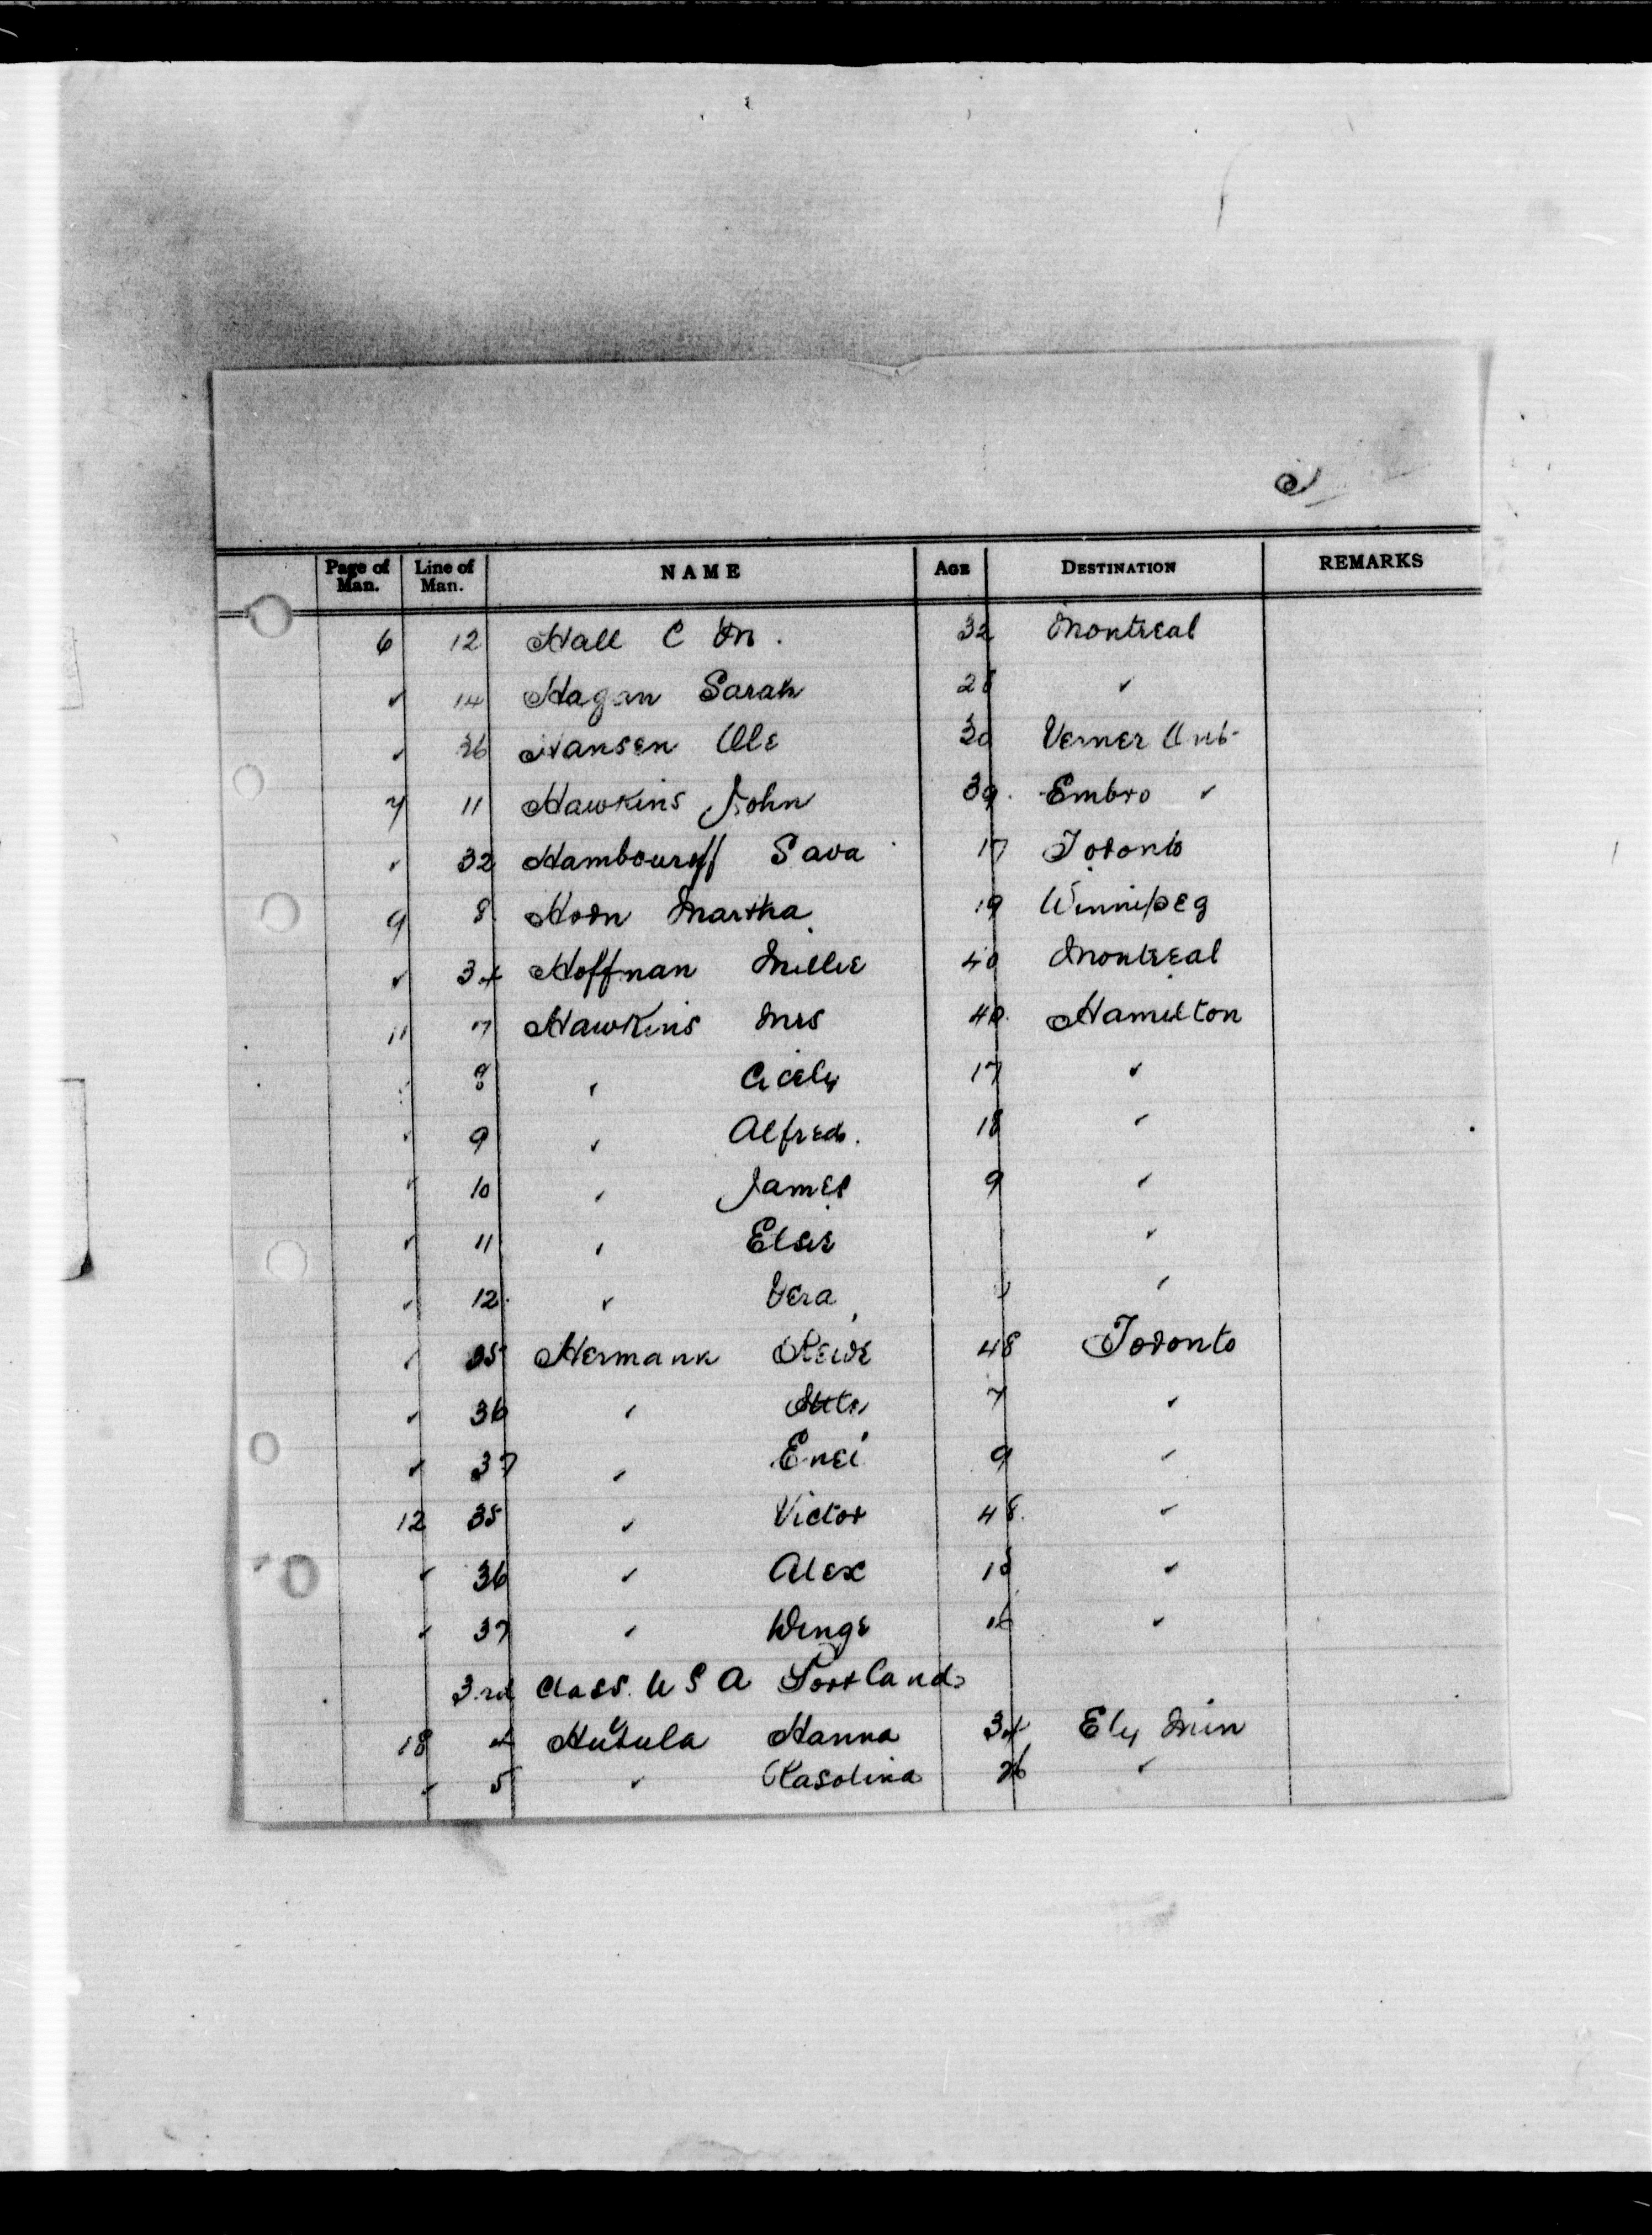 2
Page of Man. Line of Man. NAME AGE DESTINATION REMARKS
6 12 Hall C M. 32 Montreal
" 14 Hagan Sarah 28 "
" 36 Hansen Ole 30 Verner Ont
7 11 Hawkins John 39 Embro "
" 32 Hambouroff Sava 17 Toronto
9 8 Horn Martha 19 Winnipeg
" 34 Hoffman Millie 40 Montreal
11 7 Hawkins Mrs 40 Hamilton
" 8 " Cicely 17 "
" 9 " Alfred 18 "
" 10 " James 9 "
" 11 " Elsie "
" 12 " Vera "
" 35 Hermann 48 Toronto
" 36 " 7 "
" 37 " Enei 9 "
12 35 " Victor 48 "
" 36 " Alex 18 "
" 37 " 16 "
3rd Class U S A Portland
18 4 Hanna 34 Ely Min
" 5 " 26 "